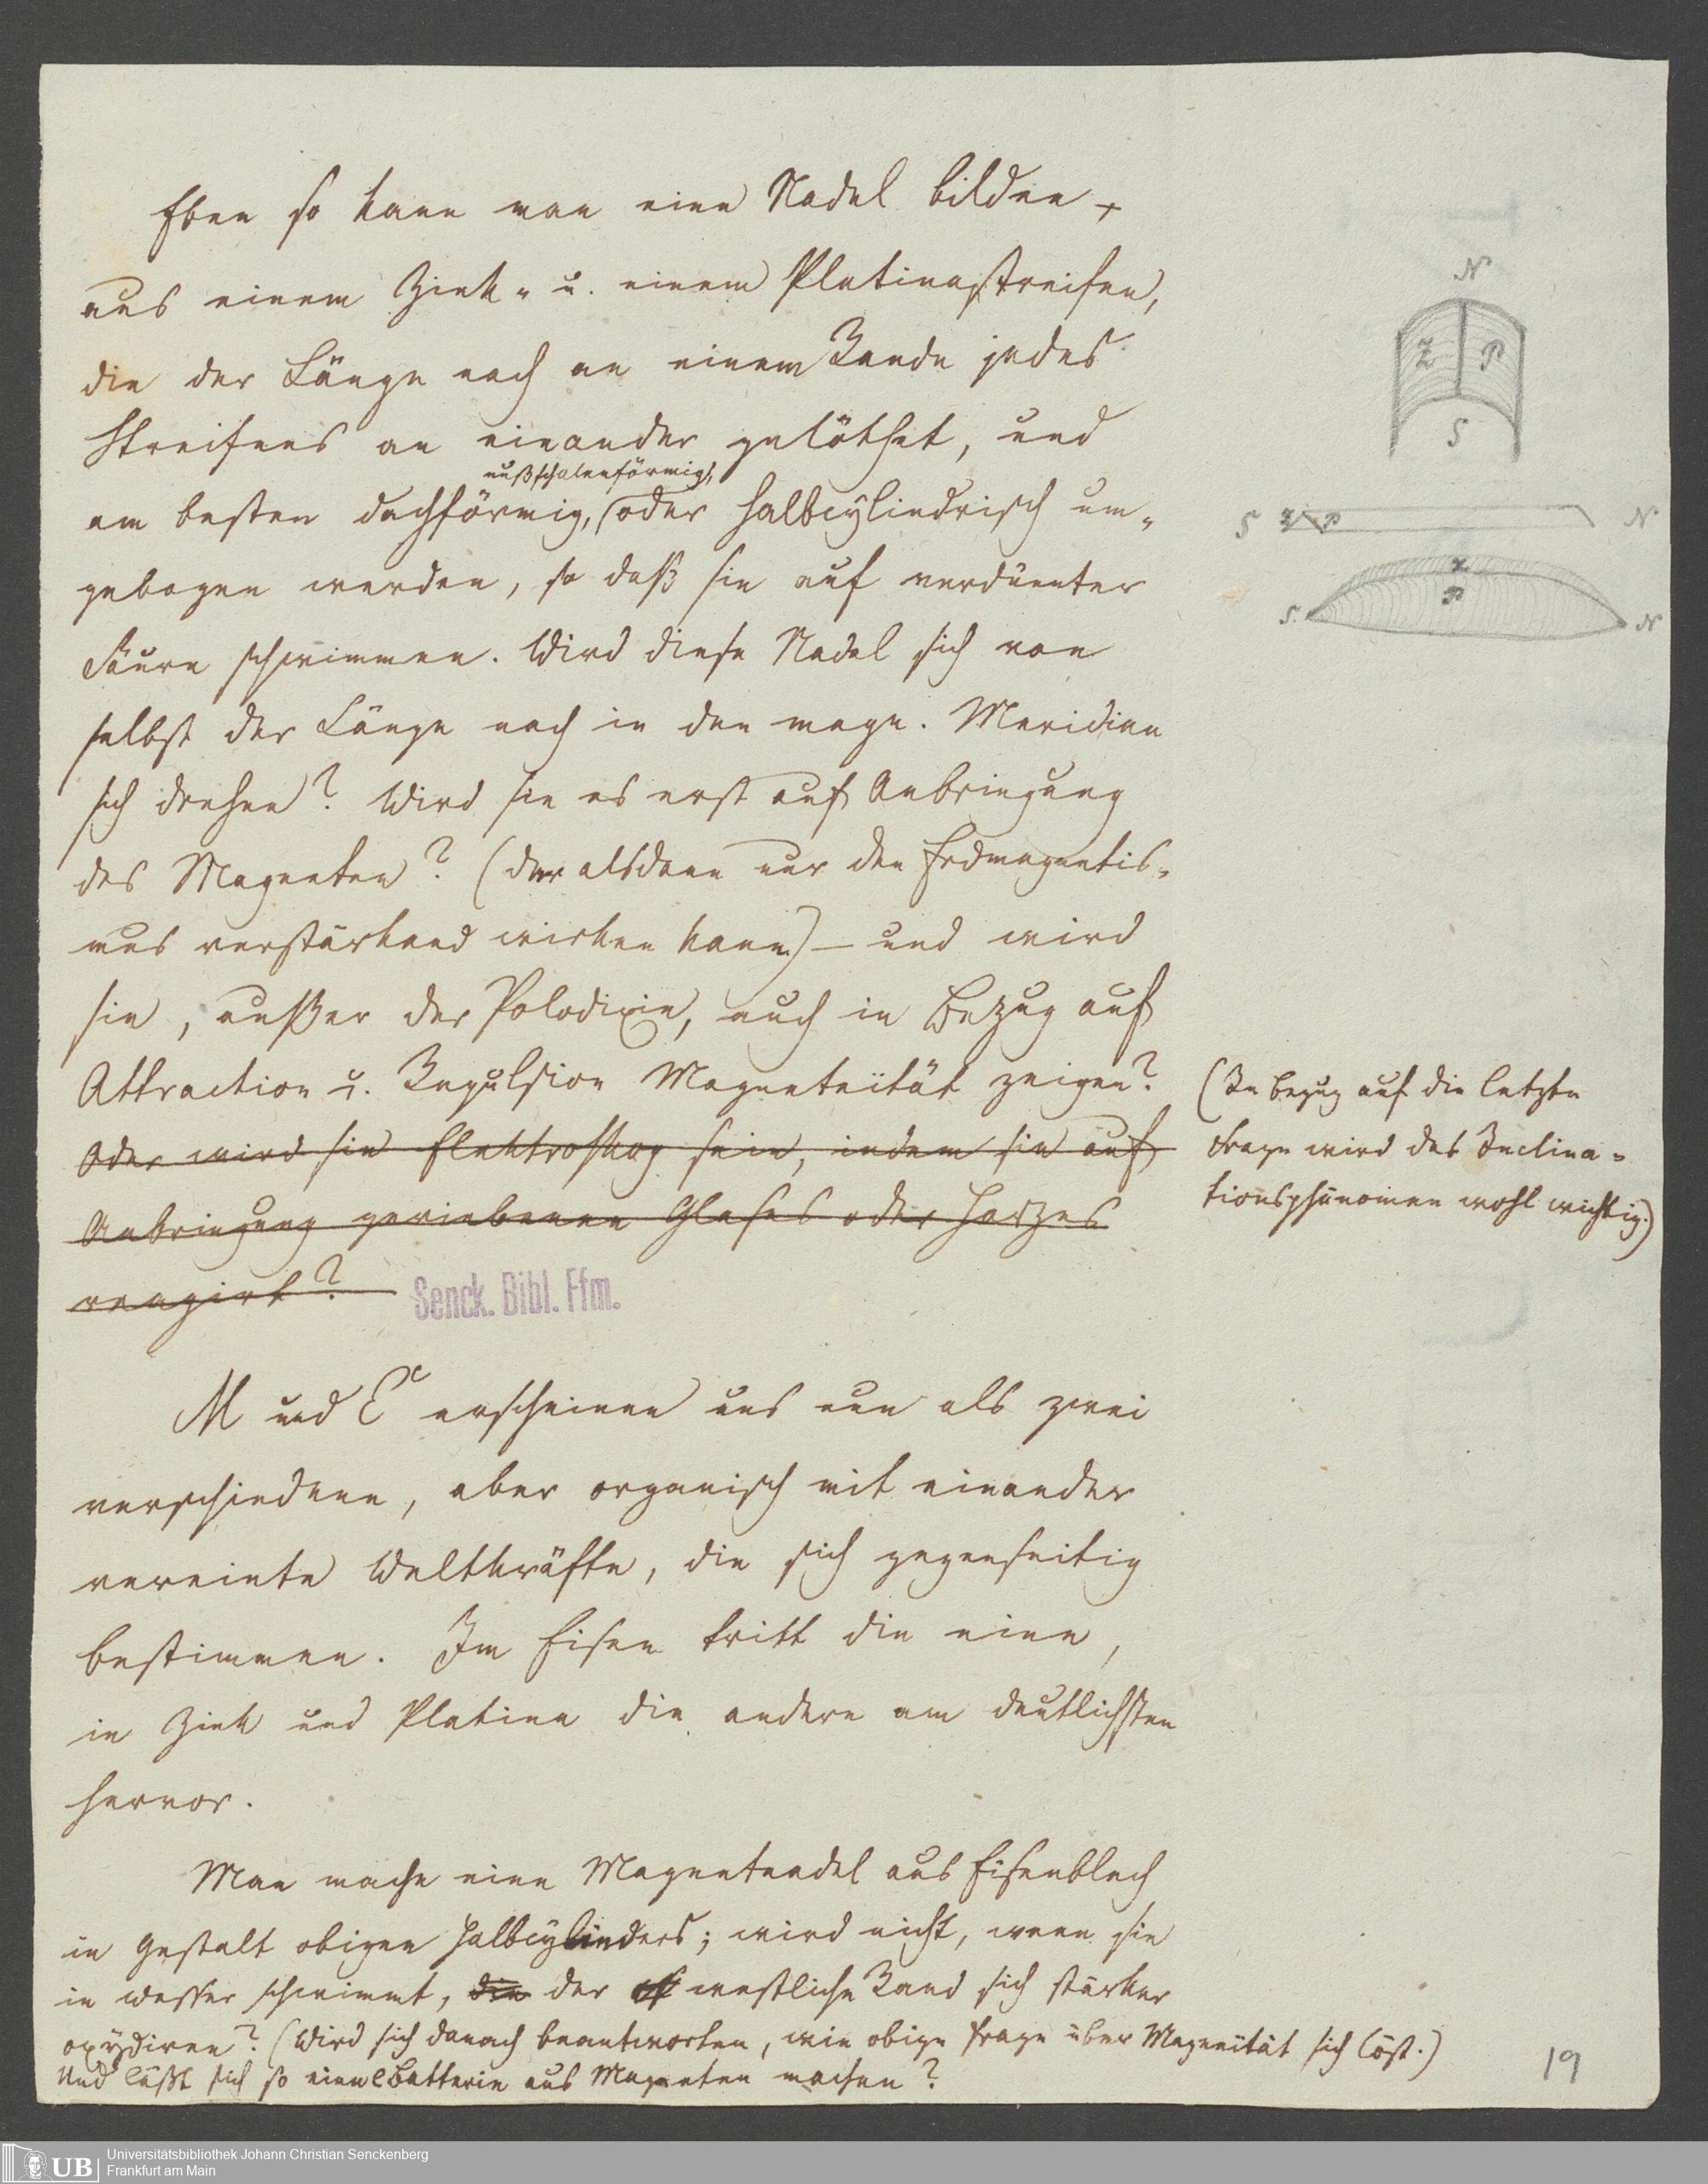 Eben so kann man eine Nadel bilden +
aus einem Zink- u. einem Platinastreifen,
die der Länge nach an einem Rande jedes
Streifens an einander gelöthet, und
nußschalenförmig,
am besten dachförmig, oder halbcylindrisch um-
gebogen werden, so daß sie auf verdünnter
Säure schwimmen. Wird diese Nadel sich von
selbst der Länge nach in den magn. Meridian
sich drehen? Wird sie es erst auf Anbringung
des Magneten? (der alsdann nur den Erdmagnetis-
mus verstärkend wirken kann) — und wird
sie, außer der Polodixie, auch in Bezug auf
Attraction u. Repulsion Magneteität zeigen?
Oder wird sie Elektroskop sein, indem sie auf
Anbringung geriebenen Glases oder Harzes
reagirt?
Senck. Bibl. Ffm.
M und E erscheinen uns nun als zwei
verschiedene, aber organisch mit einander
vereinte Weltkräfte, die sich gegenseitig
bestimmen. Im Eisen tritt die eine,
in Zink und Platina die andere am deutlichsten
hervor.
Man mache eine Magnetnadel aus Eisenblech
in Gestalt obigen Halbcylinders; wird nicht, wenn sie
in Wasser schwimmt, die der westliche Rand sich stärker
oxydiren? (Wird sich danach beantworten, wie obige Frage über Magneität sich löst.)
Und läßt sich so eine Batterie aus Magneten machen?
N
Z P
S
S Z P N
Z
P
S. N
(In Bezug auf die letzte
Frage wird das Inclina-
tionsphänomen wohl wichtig.)
19
UB
Universitätsbibliothek Johann Christian Senckenberg
Frankfurt am Main